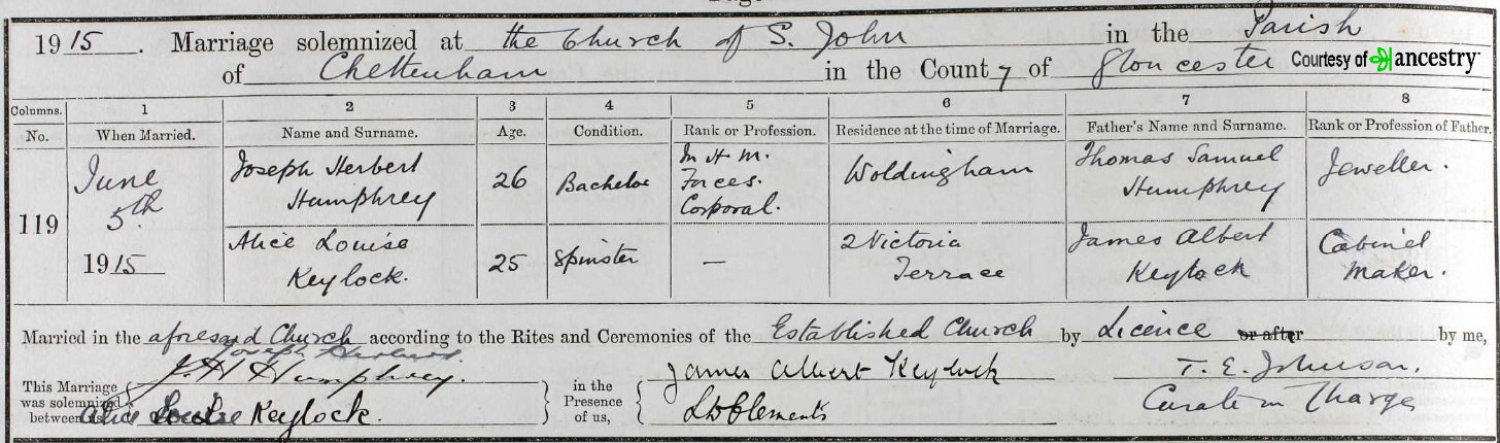 1915. Marriage solemnized at the Church of S. John in the Parish
of Cheltenham in the County of Gloucester Courtesy of ancestry
Columns. 1 2 3 4 5 6 7 8
No. When Married. Name and Surname. Age. Condition. Rank or Profession. Residence at the time of Marriage. Father's Name and Surname. Rank or Profession of Father.
119
June
5th
1915
Joseph Herbert
Humphrey
26
Bachelor
In H. M.
Forces.
Corporal.
Woldingham
Thomas Samuel
Humphrey
Jeweller.
Alice Louise
Keylock.
25
Spinster
—
2 Victoria
Terrace
James Albert
Keylock
Cabinet
Maker.
Married in the aforesaid Church according to the Rites and Ceremonies of the Established Church by Licence or after by me,
Joseph Herbert.
This Marriage
was solemnized
between us,
J. H Humphrey.
Alice Louise Keylock.
in the
Presence
of us,
James Albert Keylock
Clements
T. E. Johnson,
Curate in Charge